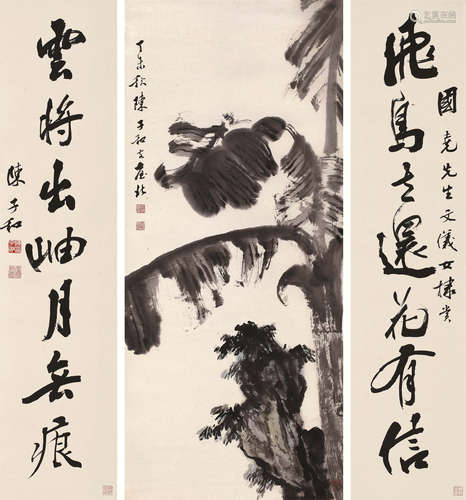 飛鳥去還花有信
國堯先生文儀女棣賞
丁未秋陳子和文畫於
雲將出岫月無痕
陳子和